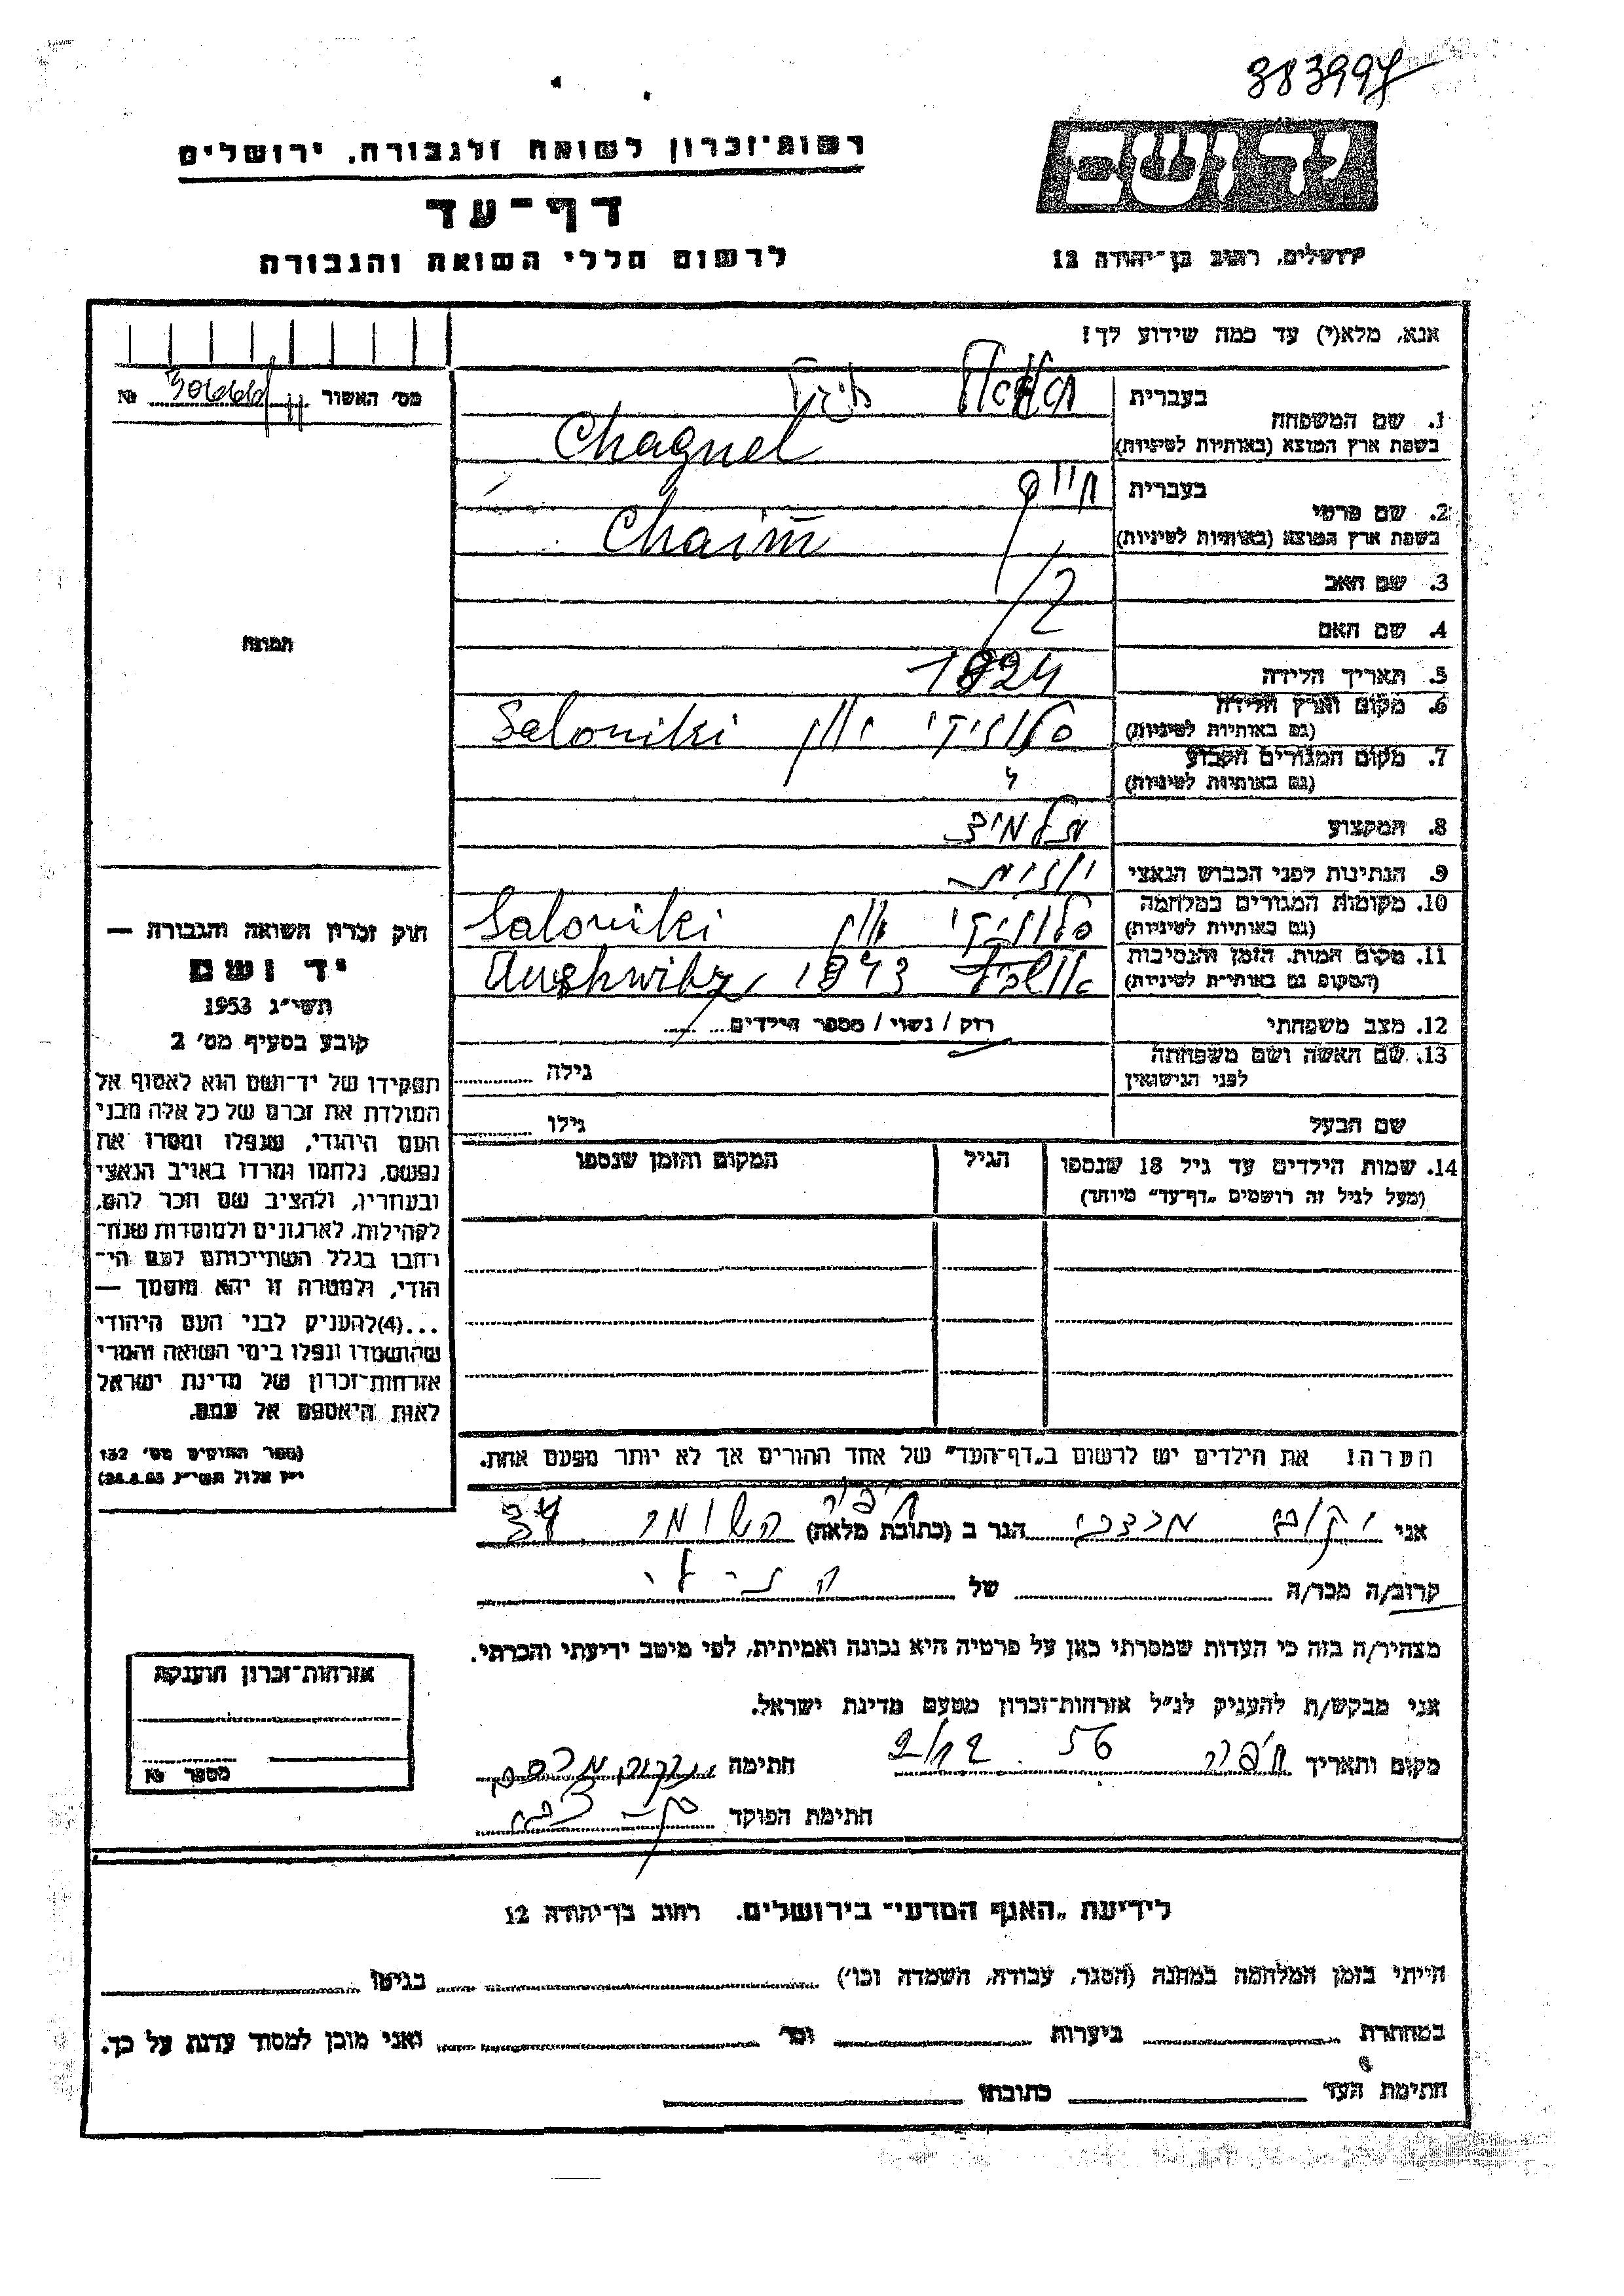 383997
רשות־זכרון לשואה ולגבורה, ירושלים
יד ושם
דף־עד
לרשום חללי השואה והגבורה
ירושלים, רחוב בן־יהודה 12
אנא, מלא(י) עד כמה שידוע לך!
מס׳ האשור № 
1. שם המשפחה
בעברית
בשפת ארץ המוצא (באותיות לטיניות) Chaguel
2. שם פרטי
בעברית חיים
בשפת ארץ המוצא (באותיות לטיניות) Chaim
3. שם האב
4. שם האם
5. תאריך הלידה 1924
6. מקום וארץ הלידה
(גם באותיות לטיניות) סלוניקי יוון Saloniki
7. מקום המגורים הקבוע
(גם באותיות לטיניות)
8. המקצוע תלמיד
9. הנתינות לפני הכבוש הנאצי יוונית
10. מקומות המגורים במלחמה
(גם באותיות לטיניות) סלוניקי יוון Saloniki
11. מקום המות, הזמן והנסיבות
(המקום גם באותיות לטיניות) אושביץ 1943 Aushwitz
12. מצב משפחתי רווק / נשוי / מספר הילדים
13. שם האשה ושם משפחתה
לפני הנישואין
גילה
שם הבעל
גילו
14. שמות הילדים עד גיל 18 שנספו
(מעל לגיל זה רושמים „דף־עד״ מיוחד)
הגיל
המקום והזמן שנספו
הערה! את הילדים יש לרשום ב„דף־העד״ של אחד ההורים אך לא יותר מפעם אחת.
התמונה
חוק זכרון השואה והגבורה —
יד ושם
תשי״ג 1953
קובע בסעיף מס׳ 2
תפקידו של יד־ושם הוא לאסוף אל
המולדת את זכרם של כל אלה מבני
העם היהודי, שנפלו ומסרו את
נפשם, נלחמו ומרדו באויב הנאצי
ובעוזריו, ולהציב שם וזכר להם,
לקהילות, לארגונים ולמוסדות שנח־
רבו בגלל השתייכותם לעם הי־
הודי, ולמטרה זו יהא מוסמך —
...(4)להעניק לבני העם היהודי
שהושמדו ונפלו בימי השואה והמרי
אזרחות־זכרון של מדינת ישראל
לאות היאספם אל עמם.
(ספר החוקים מס׳ 132
י״ז אלול תשי״ג 28.8.53)
אני יעקב מרדכי הגר ב (כתובת מלאה) חיפה השומר 34
קרוב/ה מכר/ה של
מצהיר/ה בזה כי העדות שמסרתי כאן על פרטיה היא נכונה ואמיתית, לפי מיטב ידיעתי והכרתי.
אני מבקש/ת להעניק לנ״ל אזרחות־זכרון מטעם מדינת ישראל.
מקום ותאריך חיפה 2/12 56 חתימה יעקב מרדכי
חתימת הפוקד
אזרחות־זכרון הוענקה
מספר №
לידיעת „האגף המדעי״ בירושלים, רחוב בן־יהודה 12
הייתי בזמן המלחמה במחנה (הסגר, עבודה, השמדה וכו׳) בגיטו
במחתרת ביערות וכו׳ ואני מוכן למסור עדות על כך.
חתימת העד כתובתו